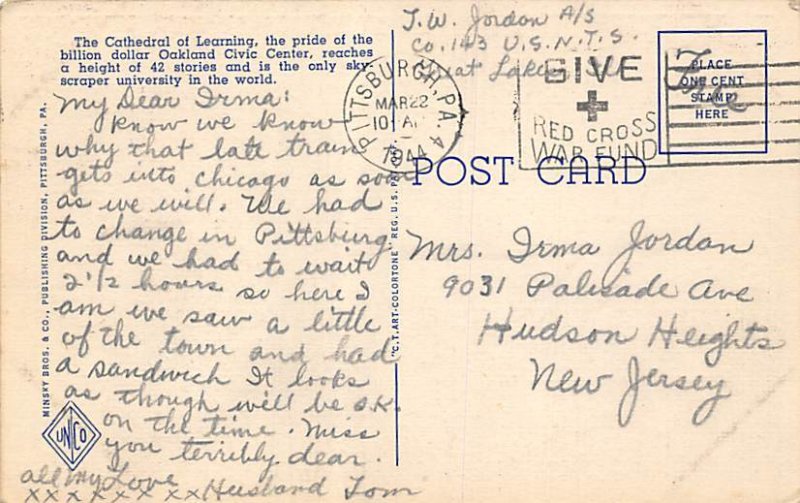 The Cathedral of Learning, the pride of the
billion dollar Oakland Civic Center, reaches
a height of 42 stories and is the only sky-
scraper university in the world.
My Dear Irma:
Know we know
why that late train
gets into chicago as soon
as we will. We had
to change in Pittsburg
and we had to wait
2 1/2 hours so here I
am we saw a little
of the town and had
a sandwich It looks
as though will be o.K.
on the time. Miss
you terribly dear.
all my Love
xx x x x x xx Husband Tom
MINSKY BROS. & CO., PUBLISHING DIVISION, PITTSBURGH, PA.
UNCO
"C.T. ART-COLORTONE" REG. U.S. PAT. OFF.
T.W. Jordon A/S
Co. 143 U.S.N.T.S.
Great Lakes, Ill
PITTSBURGH, PA. 4
MAR 22
10 AM
1944
GIVE
RED CROSS
WAR FUND
PLACE
ONE CENT
STAMP
HERE
Free
POST CARD
Mrs. Irma Jordan
9031 Palisade Ave
Hudson Heights
New Jersey